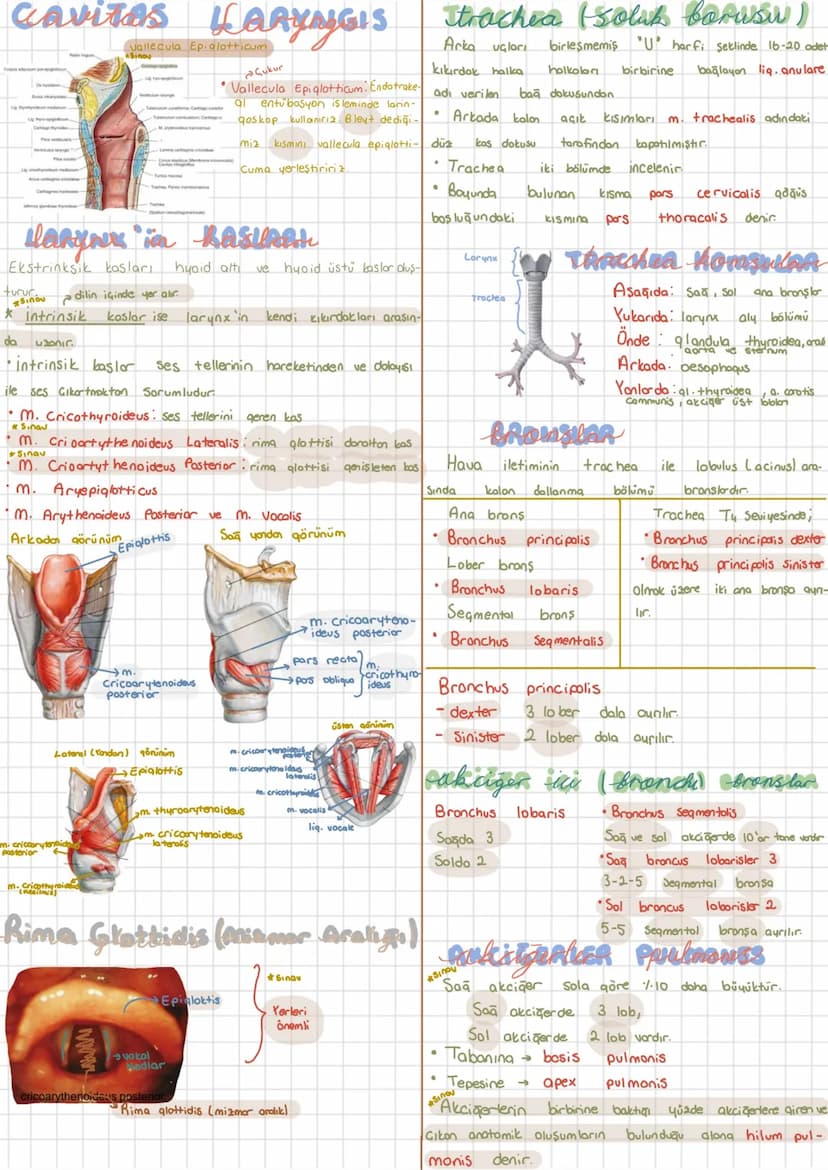 Cavitas Laryngis
Vallecula Epiglotticum
*Sınav
→ Çukur
• Vallecula Epiglotticum: Endotrake-
al entübasyon işleminde larin-
goskop kullanırız. Bleyt dediği-
miz kısmını vallecula epiglotti-
cuma yerleştiririz.
Larynx'in Kasları
Ekstrinksik kasları hyoid altı ve hyoid üstü kaslar oluş-
turur. → dilin içinde yer alır.
*Sınav
* İntrinsik kaslar ise larynx'in kendi kıkırdakları arasın-
da uzanır.
• İntrinsik kaslar ses tellerinin hareketinden ve dolayısı
ile ses çıkartmaktan sorumludur.
• M. Cricothyroideus: ses tellerini geren kas
*Sınav
• M. Cricartythenoideus Lateralis: rima glottisi daraltan kas
*Sınav
• M. Cricartythenoideus Posterior: rima glottisi genişleten kas
• M. Aryepiglotticus
• M. Arythenoideus Posterior ve M. Vocalis
Arkadan görünüm
Epiglottis
→ m.
Cricoarytenoideus
posterior
Sağ yandan görünüm
m. cricoaryteno-
ideus posterior
pars recta
pars obliqua
m.
cricothyro-
ideus
Lateral (Yandan) görünüm
Epiglottis
m. thyroarytenoideus
m. cricoarytenoideus
lateralis
m. cricoarytenoideus
posterior
m. Cricothyroideus
üsten görünüm
m. cricoarytenoideus
posterior
m. cricoarytenoideus
lateralis
m. cricothyroideus
m. vocalis
lig. vocale
Rima Glottidis (Mizmar Aralığı)
Epiglottis
→ vokal
kodlar
cricoarythenoideus posterior
Rima glottidis (mizmar aralık)
*Sınav
Yerleri
önemli
Trachea (Soluk borusu)
Arka uçları birleşmemiş "U" harfi şeklinde 16-20 adet
kıkırdak halka halkaları birbirine bağlayan lig. anulare
adı verilen bağ dokusundan
• Arkada kalan açık kısımları m. trachealis adındaki
düz kas dokusu tarafından kapatılmıştır.
• Trachea iki bölümde incelenir.
• Boyunda bulunan kısma pars cervicalis göğüs
boşluğundaki kısmına pars thoracalis denir.
Larynx
Trachea
Trachea Komşuları
Aşağıda: sağ, sol ana bronşlar
Yukarıda: larynx alt bölümü
Önde: glandula thyroidea, arcus
aorta ve sternum
Arkada: oesophagus
Yanlarda: gl. thyroidea, a. carotis
communis, akciğer üst lobları
Bronşlar
Hava iletiminin trachea ile lobulus (acinus) ara-
sında kalan dallanma bölümü bronşlardır.
Ana bronş
• Bronchus principalis
Lober bronş
• Bronchus lobaris
Segmental bronş
• Bronchus Segmentalis
Trachea T4 seviyesinde;
• Bronchus principalis dexter
• Bronchus principalis sinister
olmak üzere iki ana bronşa ayrı-
lır.
Bronchus principalis
- dexter 3 lober dala ayrılır.
- Sinister 2 lober dala ayrılır.
Akciğer içi (bronchi) bronşlar
Bronchus lobaris
Sağda 3
Solda 2
• Bronchus segmentalis
Sağ ve sol akciğerde 10'ar tane vardır
• Sağ broncus lobarisler 3
3-2-5 Segmental bronşa
• Sol broncus lobarisler 2
5-5 segmental bronşa ayrılır.
Akciğerler Pulmones
*Sınav
Sağ akciğer sola göre %10 daha büyüktür.
Sağ akciğerde 3 lob,
Sol akciğerde 2 lob vardır.
• Tabanına → basis pulmonis
• Tepesine → apex pulmonis
*Sınav
Akciğerlerin birbirine baktığı yüzde akciğerlere giren ve
çıkan anatomik oluşumların bulunduğu alana hilum pul-
monis denir.